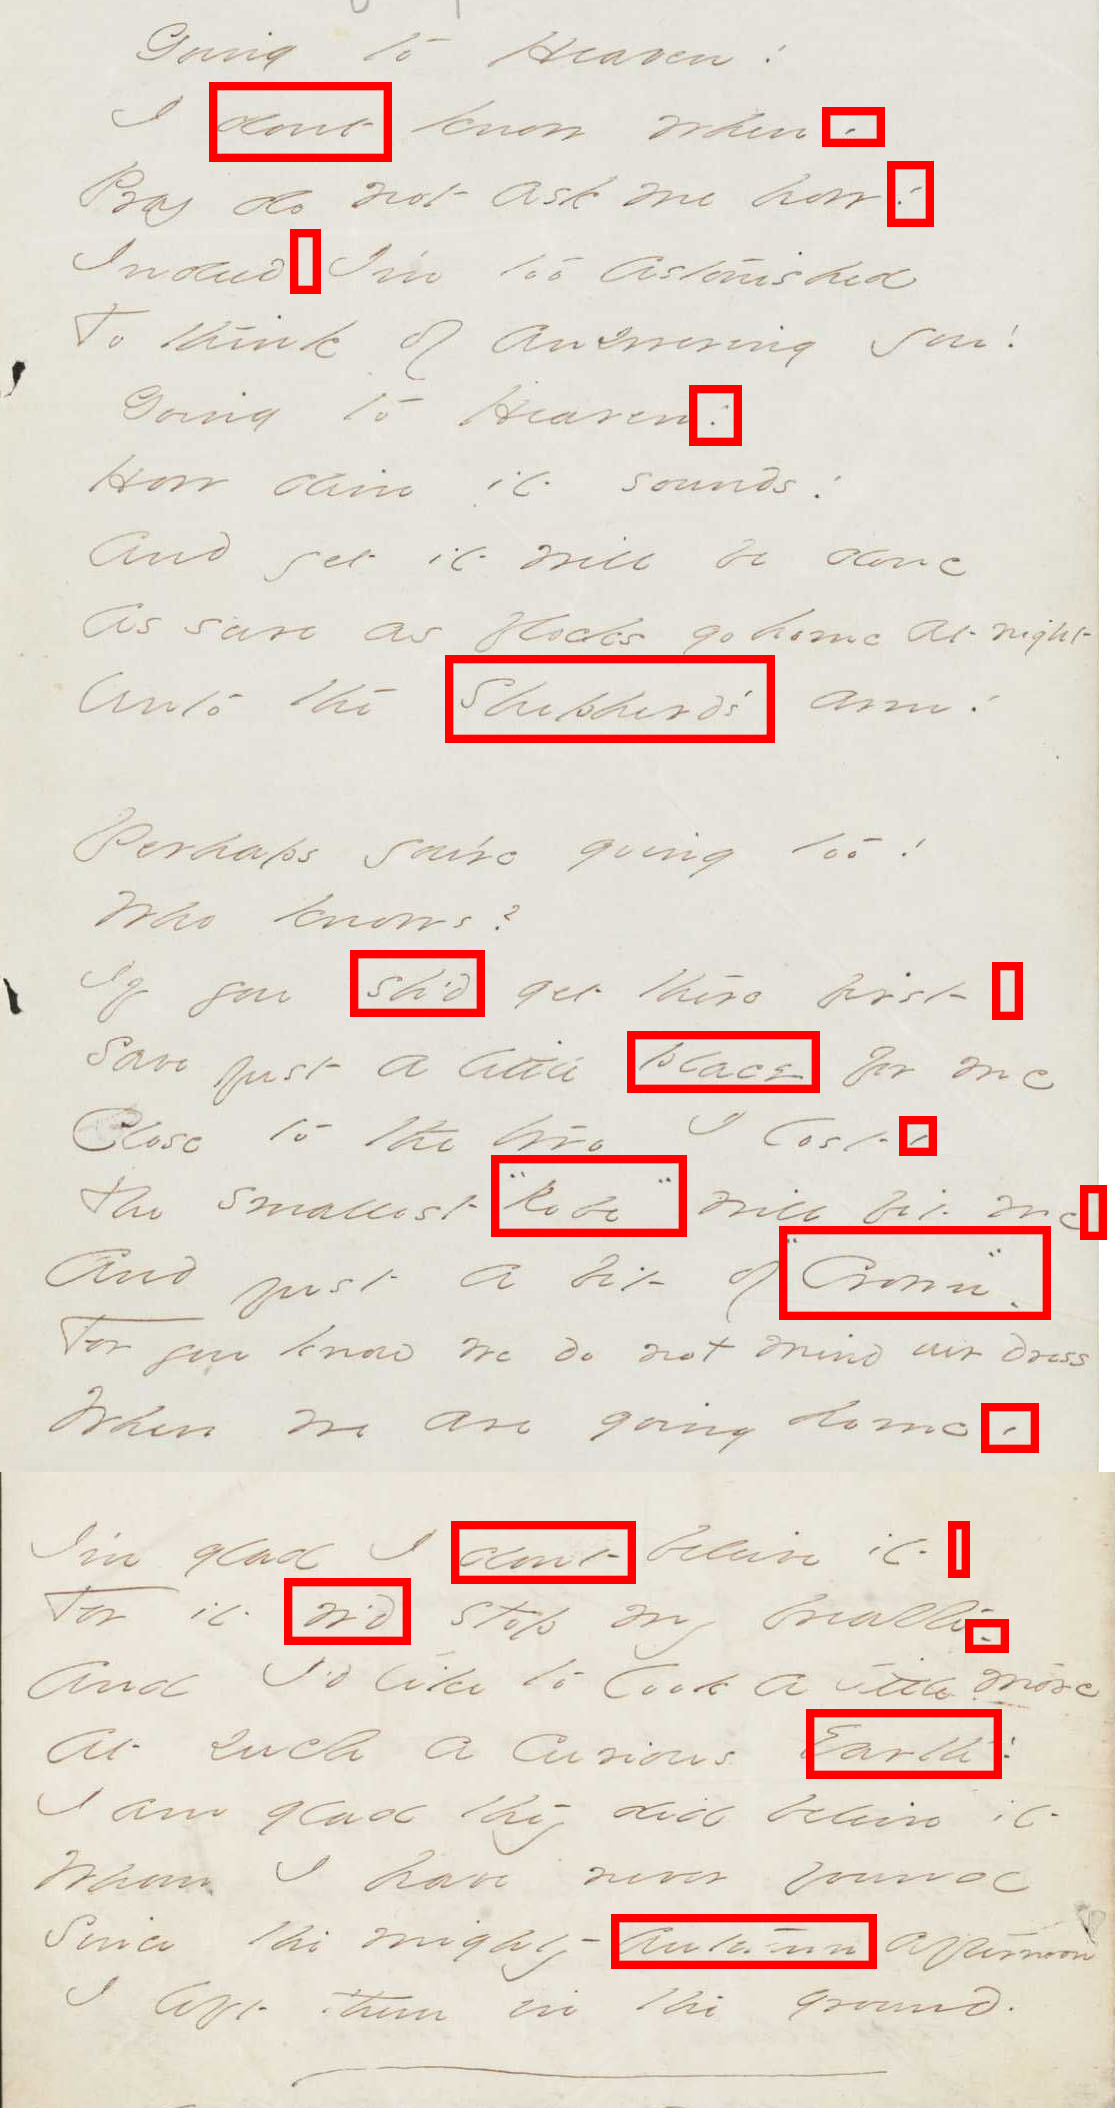 Going to Heaven!
I dont know when -
Pray do not ask me how!
Indeed I'm too astonished
To think of answering you!
Going to Heaven!
How dim it sounds!
And yet it will be done
As sure as flocks go home at night
Unto the Shepherd's arm!
Perhaps you're going too!
Who knows?
If you sh'd get there first
Save just a little place for me
Close to the two I lost -
The smallest "Robe" will fit me
And just a bit of "Crown".
For you know we do not mind our dress
When we are going home -
I'm glad I dont believe it
For it w'd stop my breath -
And I'd like to look a little more
At such a curious Earth!
I am glad they did believe it
Whom I have never found
Since the mighty autumn afternoon
I left them in the ground.